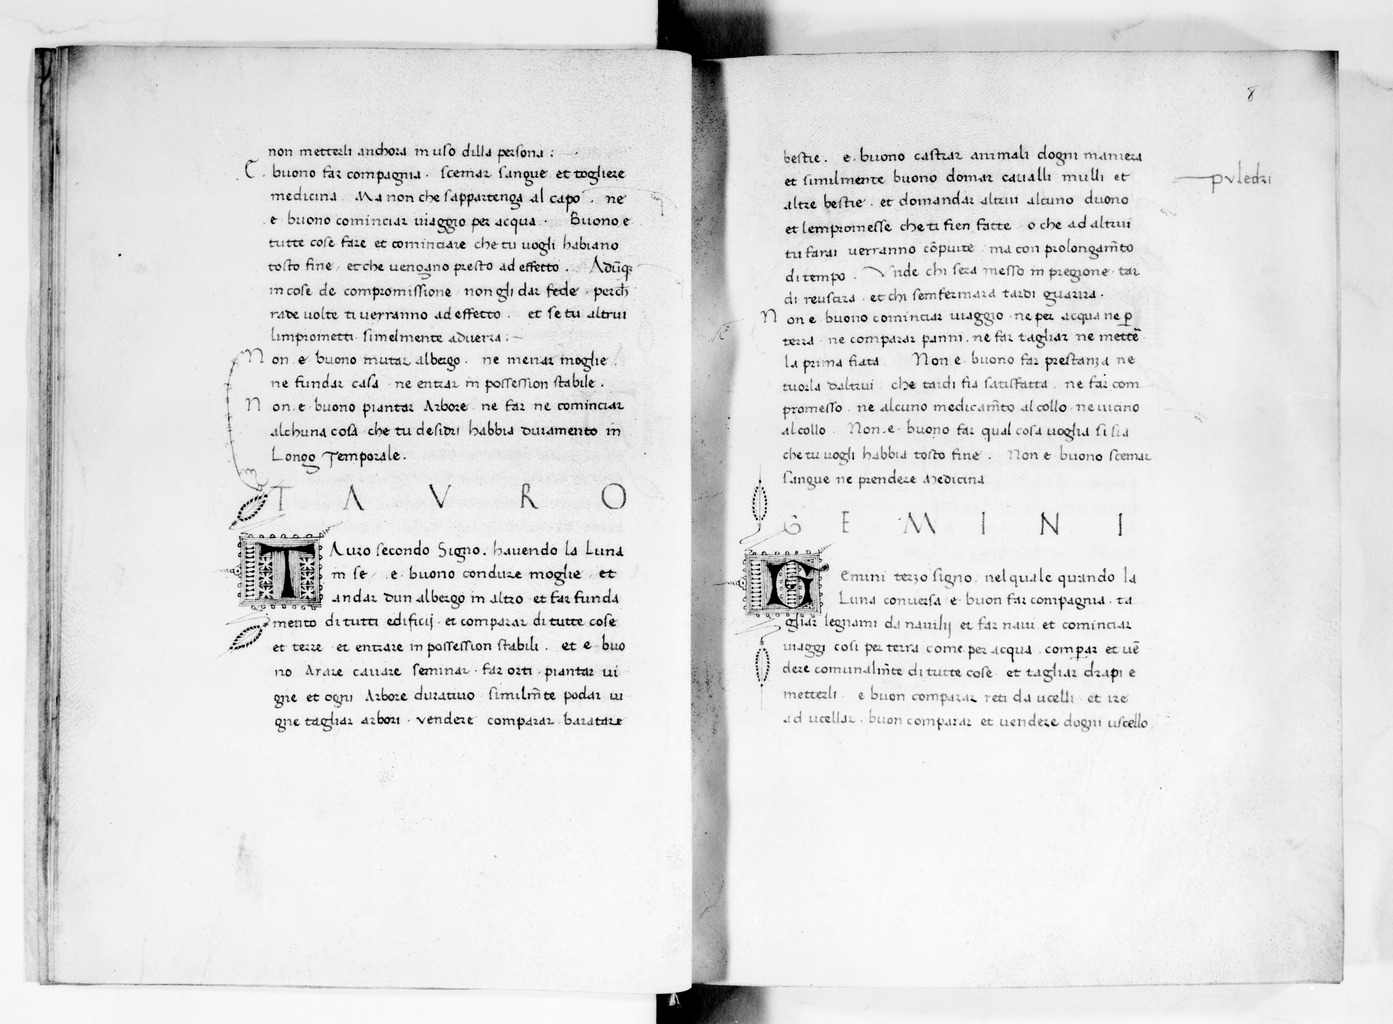 non metterli anchora in uso dilla persona :
E. buono far compagnia . scemar sangue et togliere
medicina Ma non che sappartenga al capo . ne
.e buono cominciar uiaggio per acqua . Buono e
tutte cose fare et cominciare che tu uogli habiano
tosto fine , et che vengano presto ad effetto . Adūq;
in cose de compromissione non gli dar fede perch̄
rade uolte ti verranno ad effetto . et se tu altrui
limprometti simelmente aduerra :
Non .e buono mutar albergo . ne menar moglie
ne fundar casa ne entrar in possession stabile .
Non .e buono piantar Arbore ne far ne cominciar
alchuna cosa che tu desidri habbia duramento in
Longo Temporale .
TAVRO
TAuro secondo Signo . hauendo la Luna
in se .e buono condure moglie et
andar dun albergo in altro et far funda
mento di tutti edificij et comparar di tutte cose
et terre et entrare in possession stabili . et e buo
no Arare cauare seminar far orti piantar ui
gne et ogni Arbore duratiuo similm̄te podar ui
gne tagliar arbori . vendere comparar baratare
8
bestie . e. buono castrar animali dogni maniera
et similmente buono domar caualli mulli et
puledri
altre bestie . et domandar altrui alcuno duono
et lempromesse che ti fien fatte o che ad altrui
tu farai verranno cōpiute ma con prolongam̄to
di tempo . Vnde chi sera messo in pregione tar
di reuscira . et chi semfermara tardi guarira .
Non e buono cominciar uiaggio . ne per acqua ne p̄
terra ne comparar panni . ne far tagliar ne mettē
la prima fiata Non e buono far prestanza ne
tuorla daltrui che tardi fia satisfatta . ne far com
promesso ne alcuno medicam̄to al collo . ne uicino
al collo Non . e buono far qual cosa uoglia si sia
che tu uogli habbia tosto fine . Non e buono scemar
sangue ne prendere Medicina
GEMINI
GEmini terzo signo nel quale quando la
Luna conuersa e buon far compagnia . ta
gliar legnami da nauilij et far naui et cominciar
uiaggi cosi per terra come per acqua comparar et uē
dere comunalm̄te di tutte cose et tagliar drapi e
metterli e buon comparar reti da ucelli et ire
ad ucellar . buon comparar et uendere dogni uscello